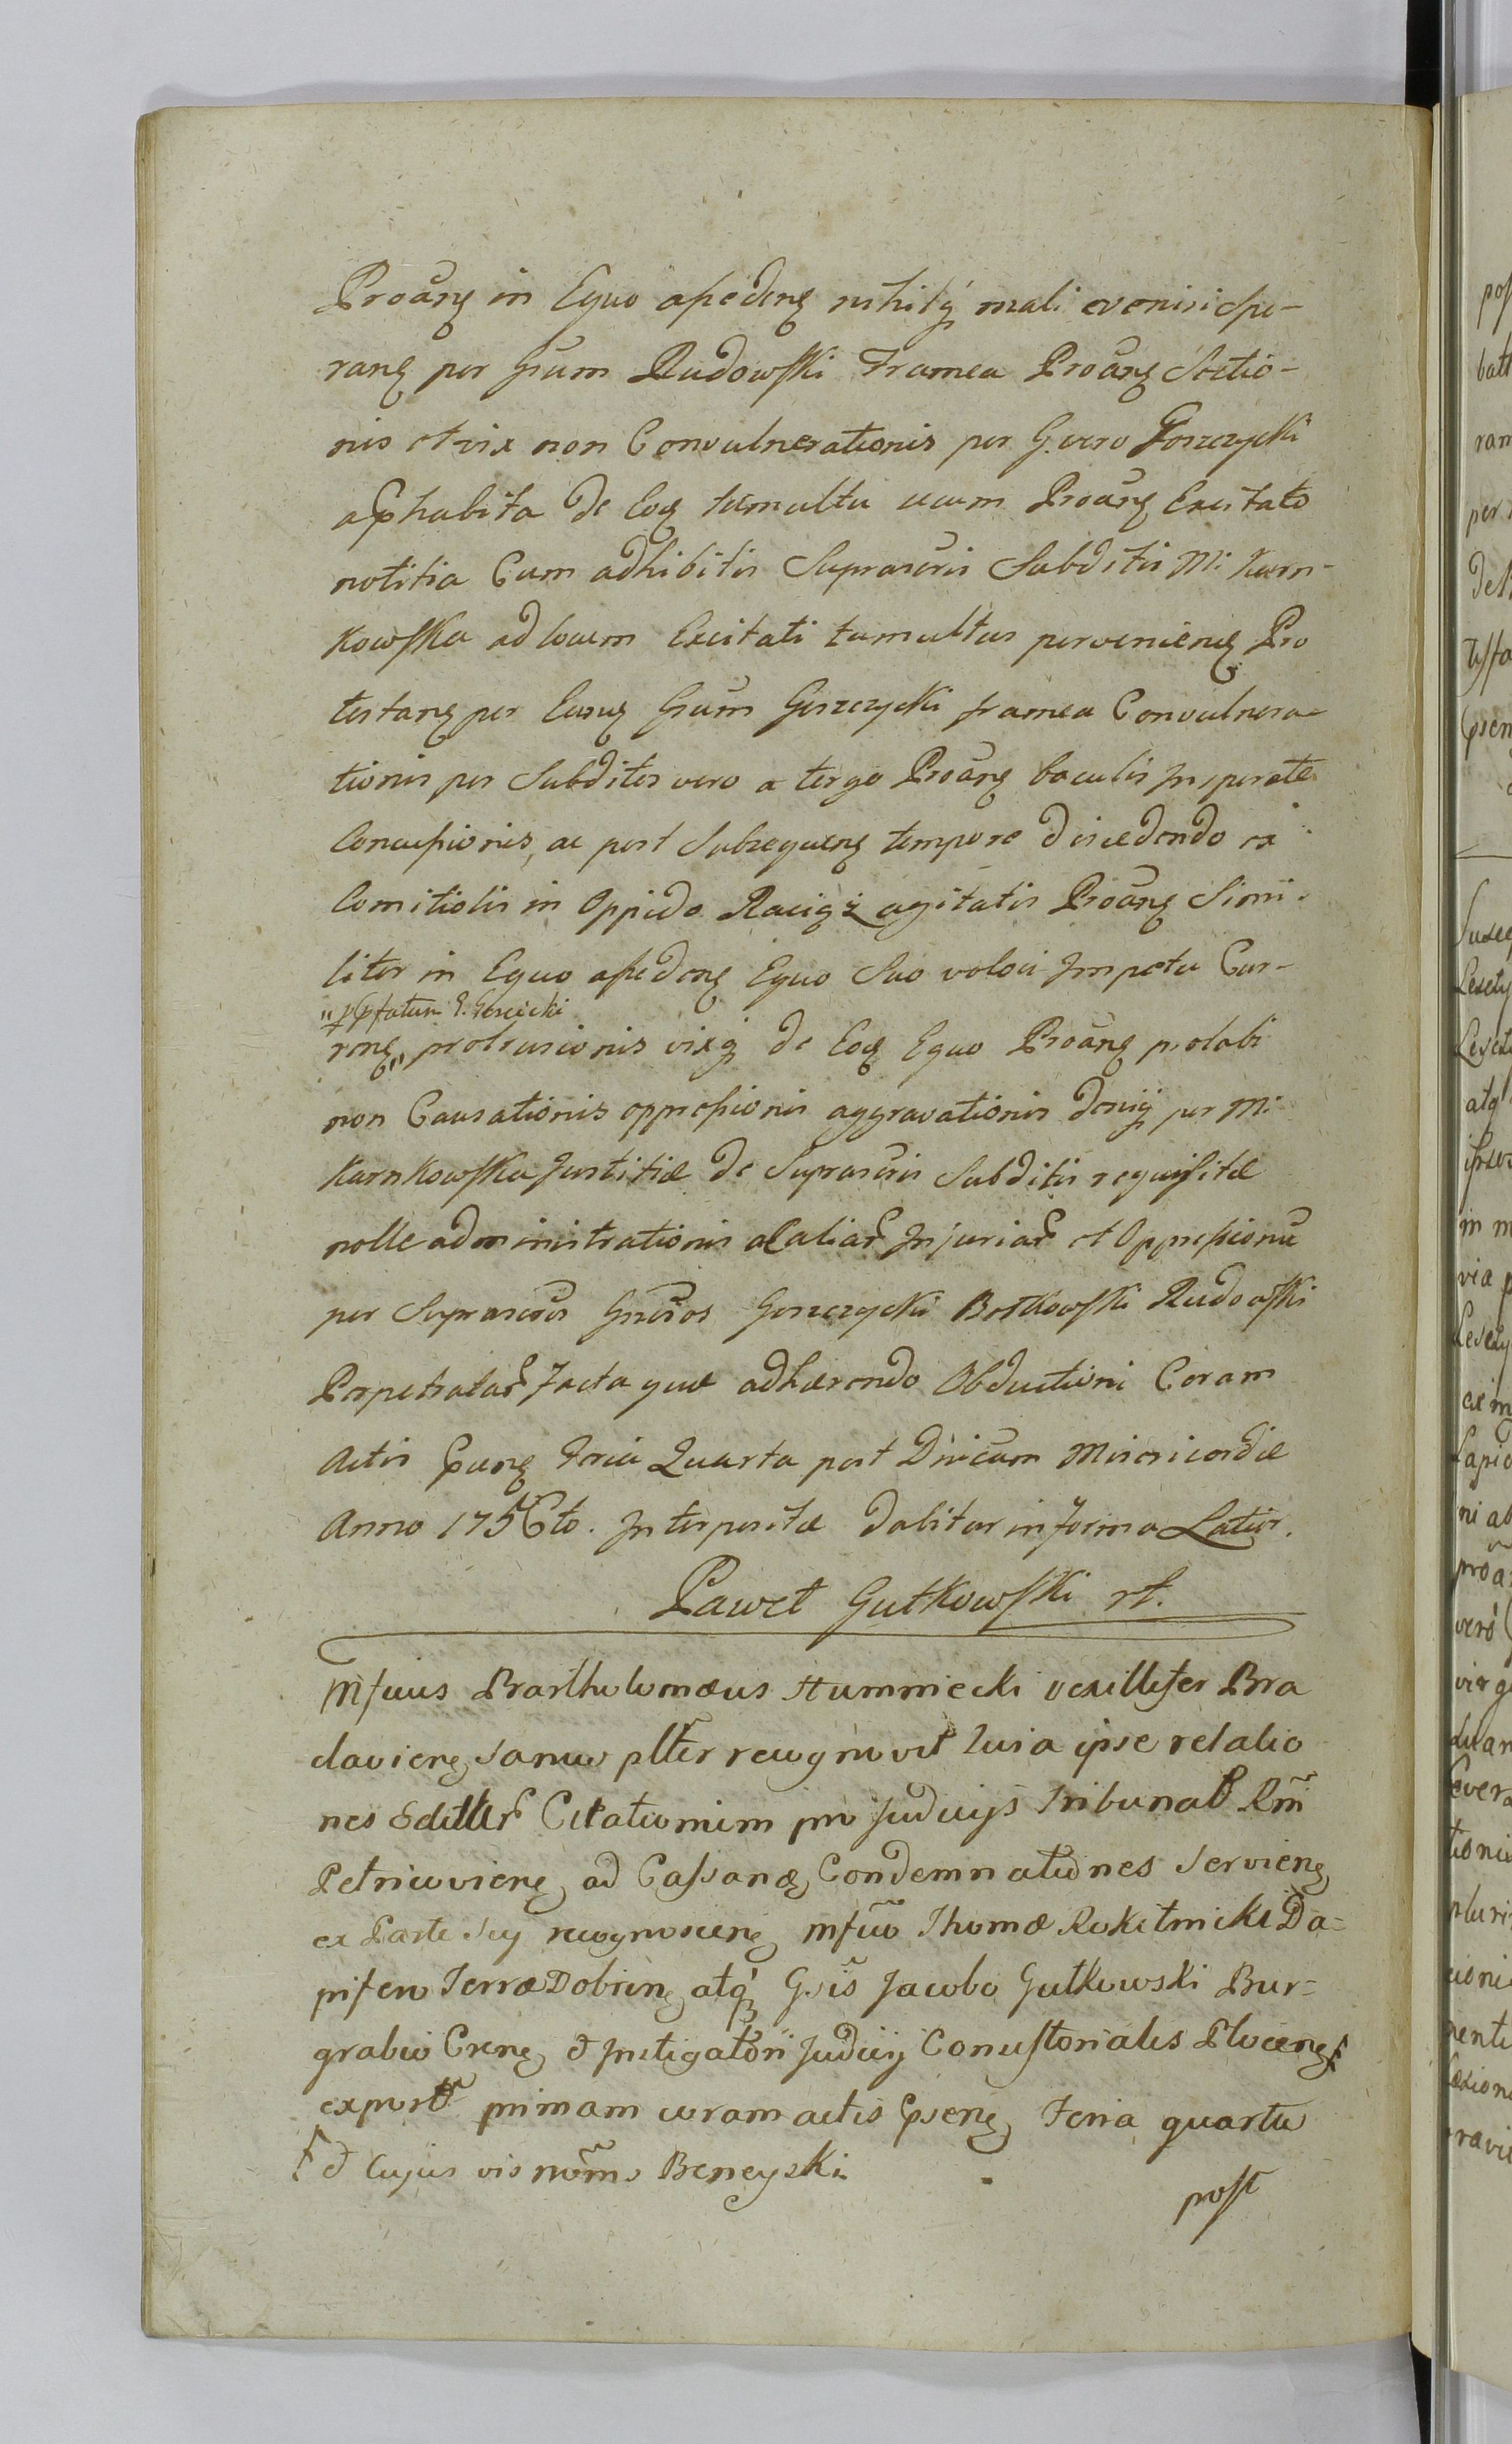 Proãng in Equo assedeng nihilq mali evenisi spe-
rang per Grum Rudowski Framea Proãng Sectio-
nis et vix non Convulnerationis per G. vero Goszczycki
assphabita de Eoq tumultu cum Proãng Excitato
notitia Cum adhibitis Suprascris Subditis M. Karn-
kowska ad locum Excitati tumultus perveniend Pro
testang per Eunq Grum Goszczycki framea Convulnera-
tionis per Subditos vero a tergo Proãng baculis Insperate
Concussionis, ac post Subsequeng tempore discedendo ex
Comitiolis in Oppido Raciąż agitatis Proãng Simi-
liter in Equo assedeng Equo Suo veloci Impetu Cur-
"p pfatum G. Goscicki
reng" protrusionis vixq de Eoq Equo Proãng prolabi
non Causationis oppressionis aggravationis deniq per M:
Karnkowska Justitiæ de Suprascris Subditis requisitæ
nolle administrationis aliar Injuriar et Oppressionu
per Suprascros Grosos Goszczycki Borkowski Rudowski
Perpetratar facta quæ adhærendo Obductioni Coram
Actis Feria Quarta post Dnicam Misericordiæ
Anno 1756to. Interpositæ dabitur in forma Latior.
Paweł Gutkowski rt.
Mfcus Bartholomæus Humniecki vexillifer Bra
claviens, sanus plter recognovit Quia ipse relatio
nes Citationum pro Judicijs Tribunal Rni
Petricoviens, ad Cassand, Condemnationes Serviens,
ex Parte sui recognoscens, Mfco Thomæ Rokitnicki Da-
pifero Terræ Dobrin, atq Gsis Jacobo Gutkowski Bur-
grabio Crens, & Instigatori Judicij Consistorialis Plocens,
export primam coram actis Feria quarta
& Cujus vis noms Beneyski
post